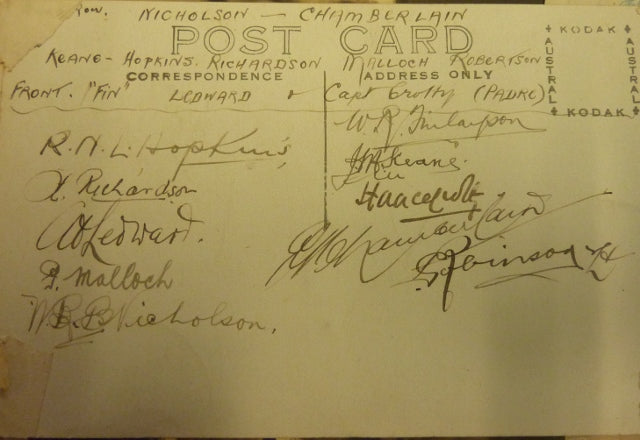 Row. NICHOLSON — CHAMBERLAIN
POST CARD
KODAK
AUSTRAL
AUSTRAL
KODAK
KEANE - HOPKINS. RICHARDSON MALLOCH ROBERTSON
CORRESPONDENCE ADDRESS ONLY
FRONT. "FIN" LEDWARD Capt Crotty (PADRE)
R. N. L. Hopkins,
W. R. Finlayson
Keane.
X. Richardson
Ledward.
Chamberlain
P. Malloch
Robinson
Nicholson.